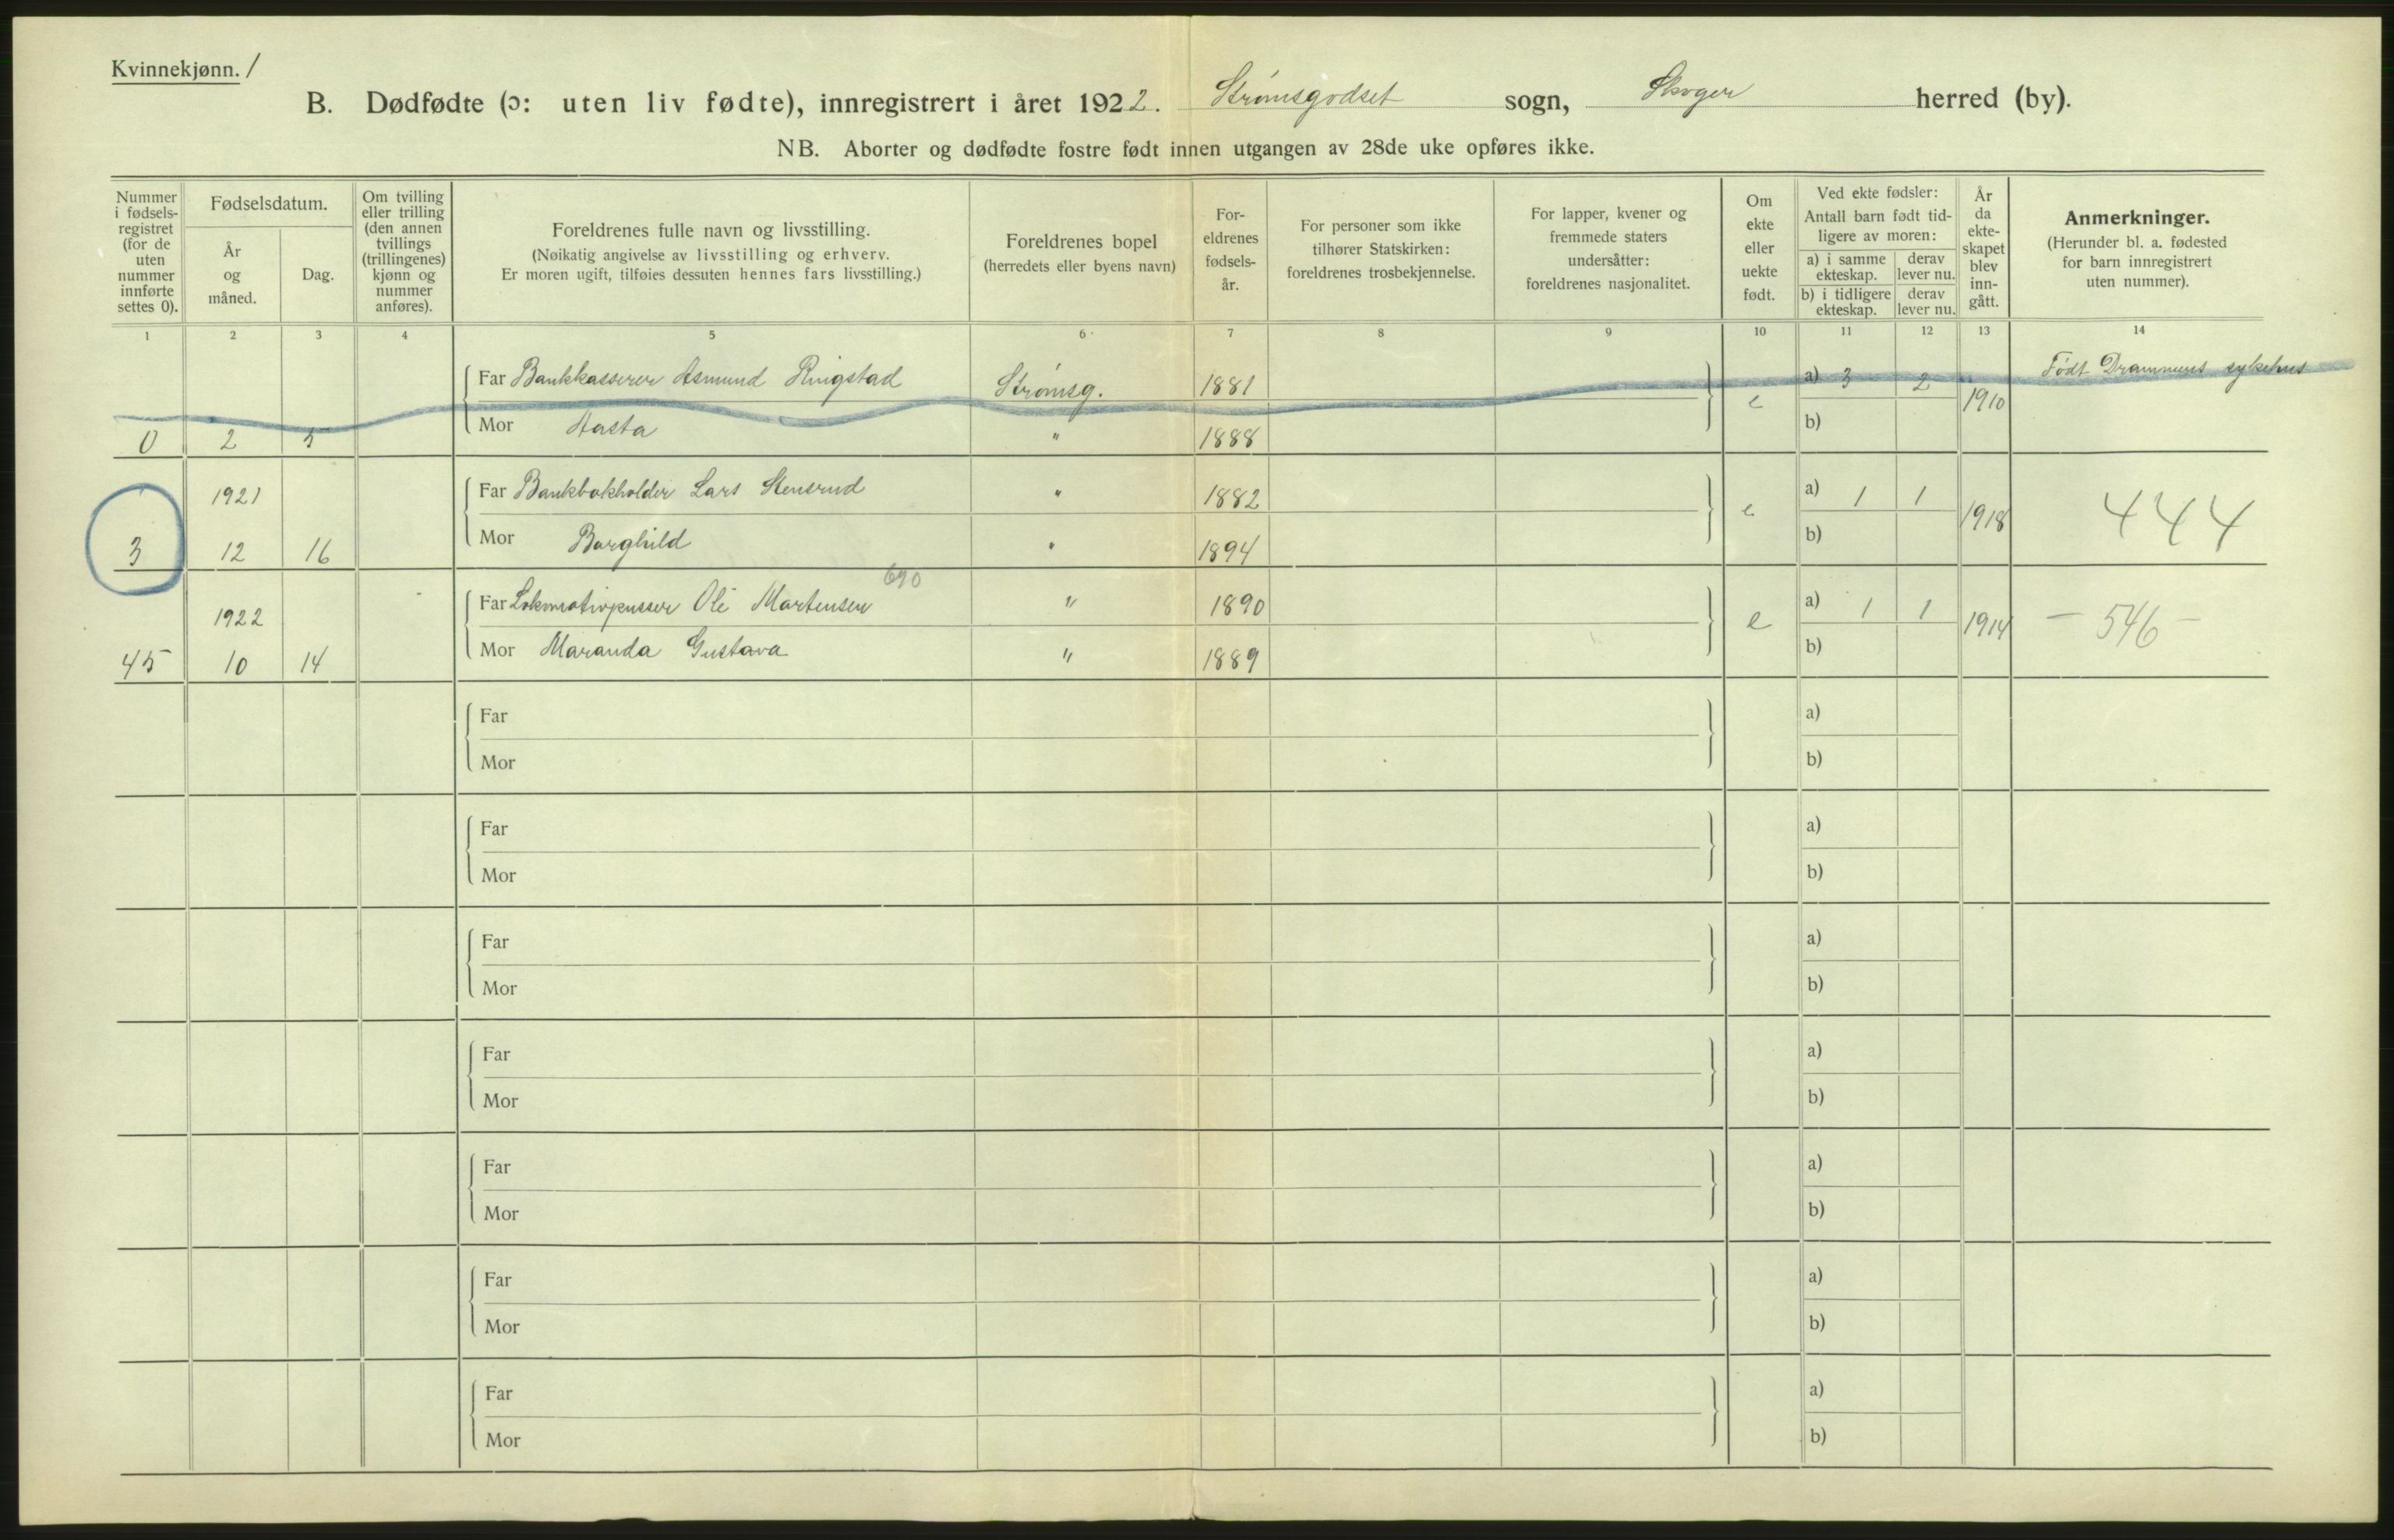 Kvinnekjønn. /
B. Dødfødte (ɔ: uten liv fødte), innregistrert i året 1922. Strømsgodset sogn, Skoger herred (by).
NB. Aborter og dødfødte fostre født innen utgangen av 28de uke opføres ikke.
Nummer i fødsels- registret (for de uten nummer innførte settes 0).
Fødselsdatum.
År og måned.
Dag.
Om tvilling eller trilling (den annen tvillings (trillingenes) kjønn og nummer anføres).
Foreldrenes fulle navn og livsstilling.
(Nøikatig angivelse av livsstilling og erhverv.
Er moren ugift, tilføies dessuten hennes fars livsstilling.)
Foreldrenes bopel
(herredets eller byens navn)
For- eldrenes fødsels- år.
For personer som ikke tilhører Statskirken: foreldrenes trosbekjennelse.
For lapper, kvener og fremmede staters undersåtter: foreldrenes nasjonalitet.
Om ekte eller uekte født.
Ved ekte fødsler:
Antall barn født tid- ligere av moren:
a) i samme ekteskap.
derav lever nu.
b) i tidligere ekteskap.
derav lever nu.
År da ekte- skapet blev inn- gått.
Anmerkninger.
(Herunder bl. a. fødested for barn innregistrert uten nummer).
1 2 3 4 5 6 7 8 9 10 11 12 13 14
Far Bankkasserer Asmund Ringstad Strømsg. 1881 a) 3 2 Født Drammens sykehus
0 2 5 Mor Aasta " 1888 e b) 1910
1921 Far Bankbokholder Lars Stensrud " 1882 a) 1 1
3 12 16 Mor Borghild " 1894 e b) 1918 444
690
1922 Far Lokomotivpusser Ole Martensen " 1890 a) 1 1
45 10 14 Mor Maranda Gustava " 1889 e b) 1914 - 546 -
Far a)
Mor b)
Far a)
Mor b)
Far a)
Mor b)
Far a)
Mor b)
Far a)
Mor b)
Far a)
Mor b)
Far a)
Mor b)